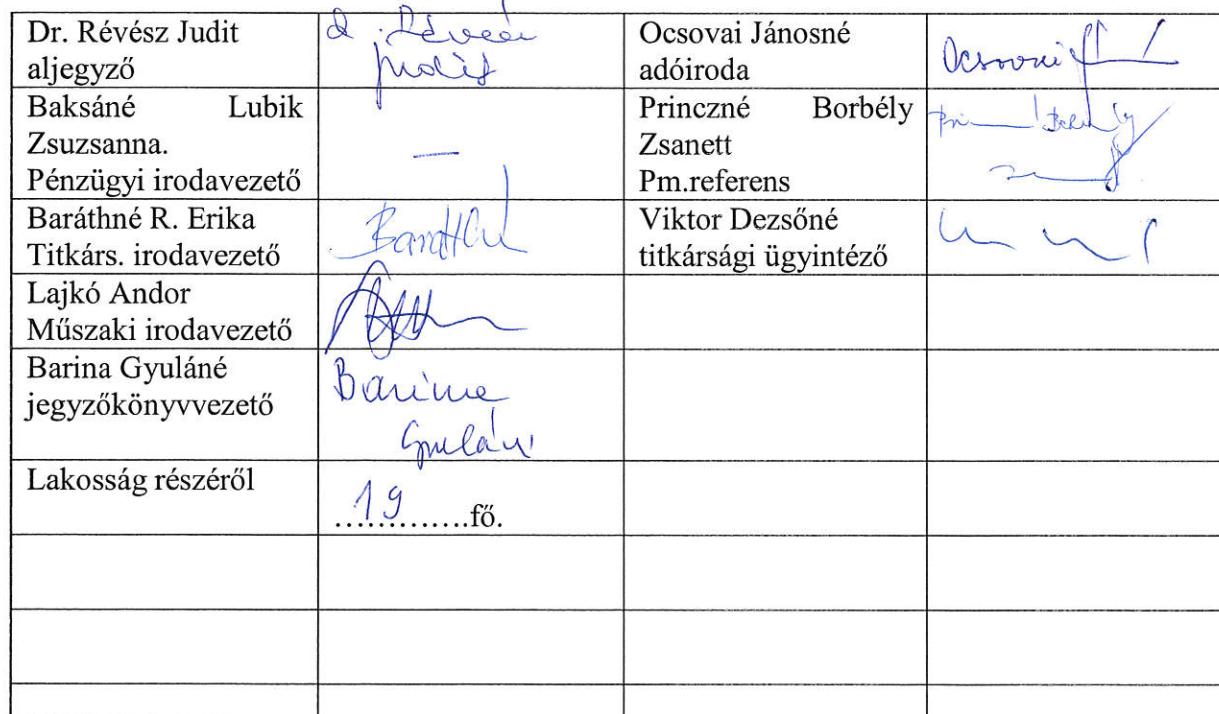 Dr. Révész Judit
aljegyző
d. Révész
Judit
Ocsovai Jánosné
adóiroda
Ocsovai
Baksáné Lubik
Zsuzsanna.
Pénzügyi irodavezető
—
Princzné Borbély
Zsanett
Pm.referens
Baráthné R. Erika
Titkárs. irodavezető
Baráthné
Viktor Dezsőné
titkársági ügyintéző
Lajkó Andor
Műszaki irodavezető
Barina Gyuláné
jegyzőkönyvvezető
Barina
Gyuláné
Lakosság részéről
19
.............fő.